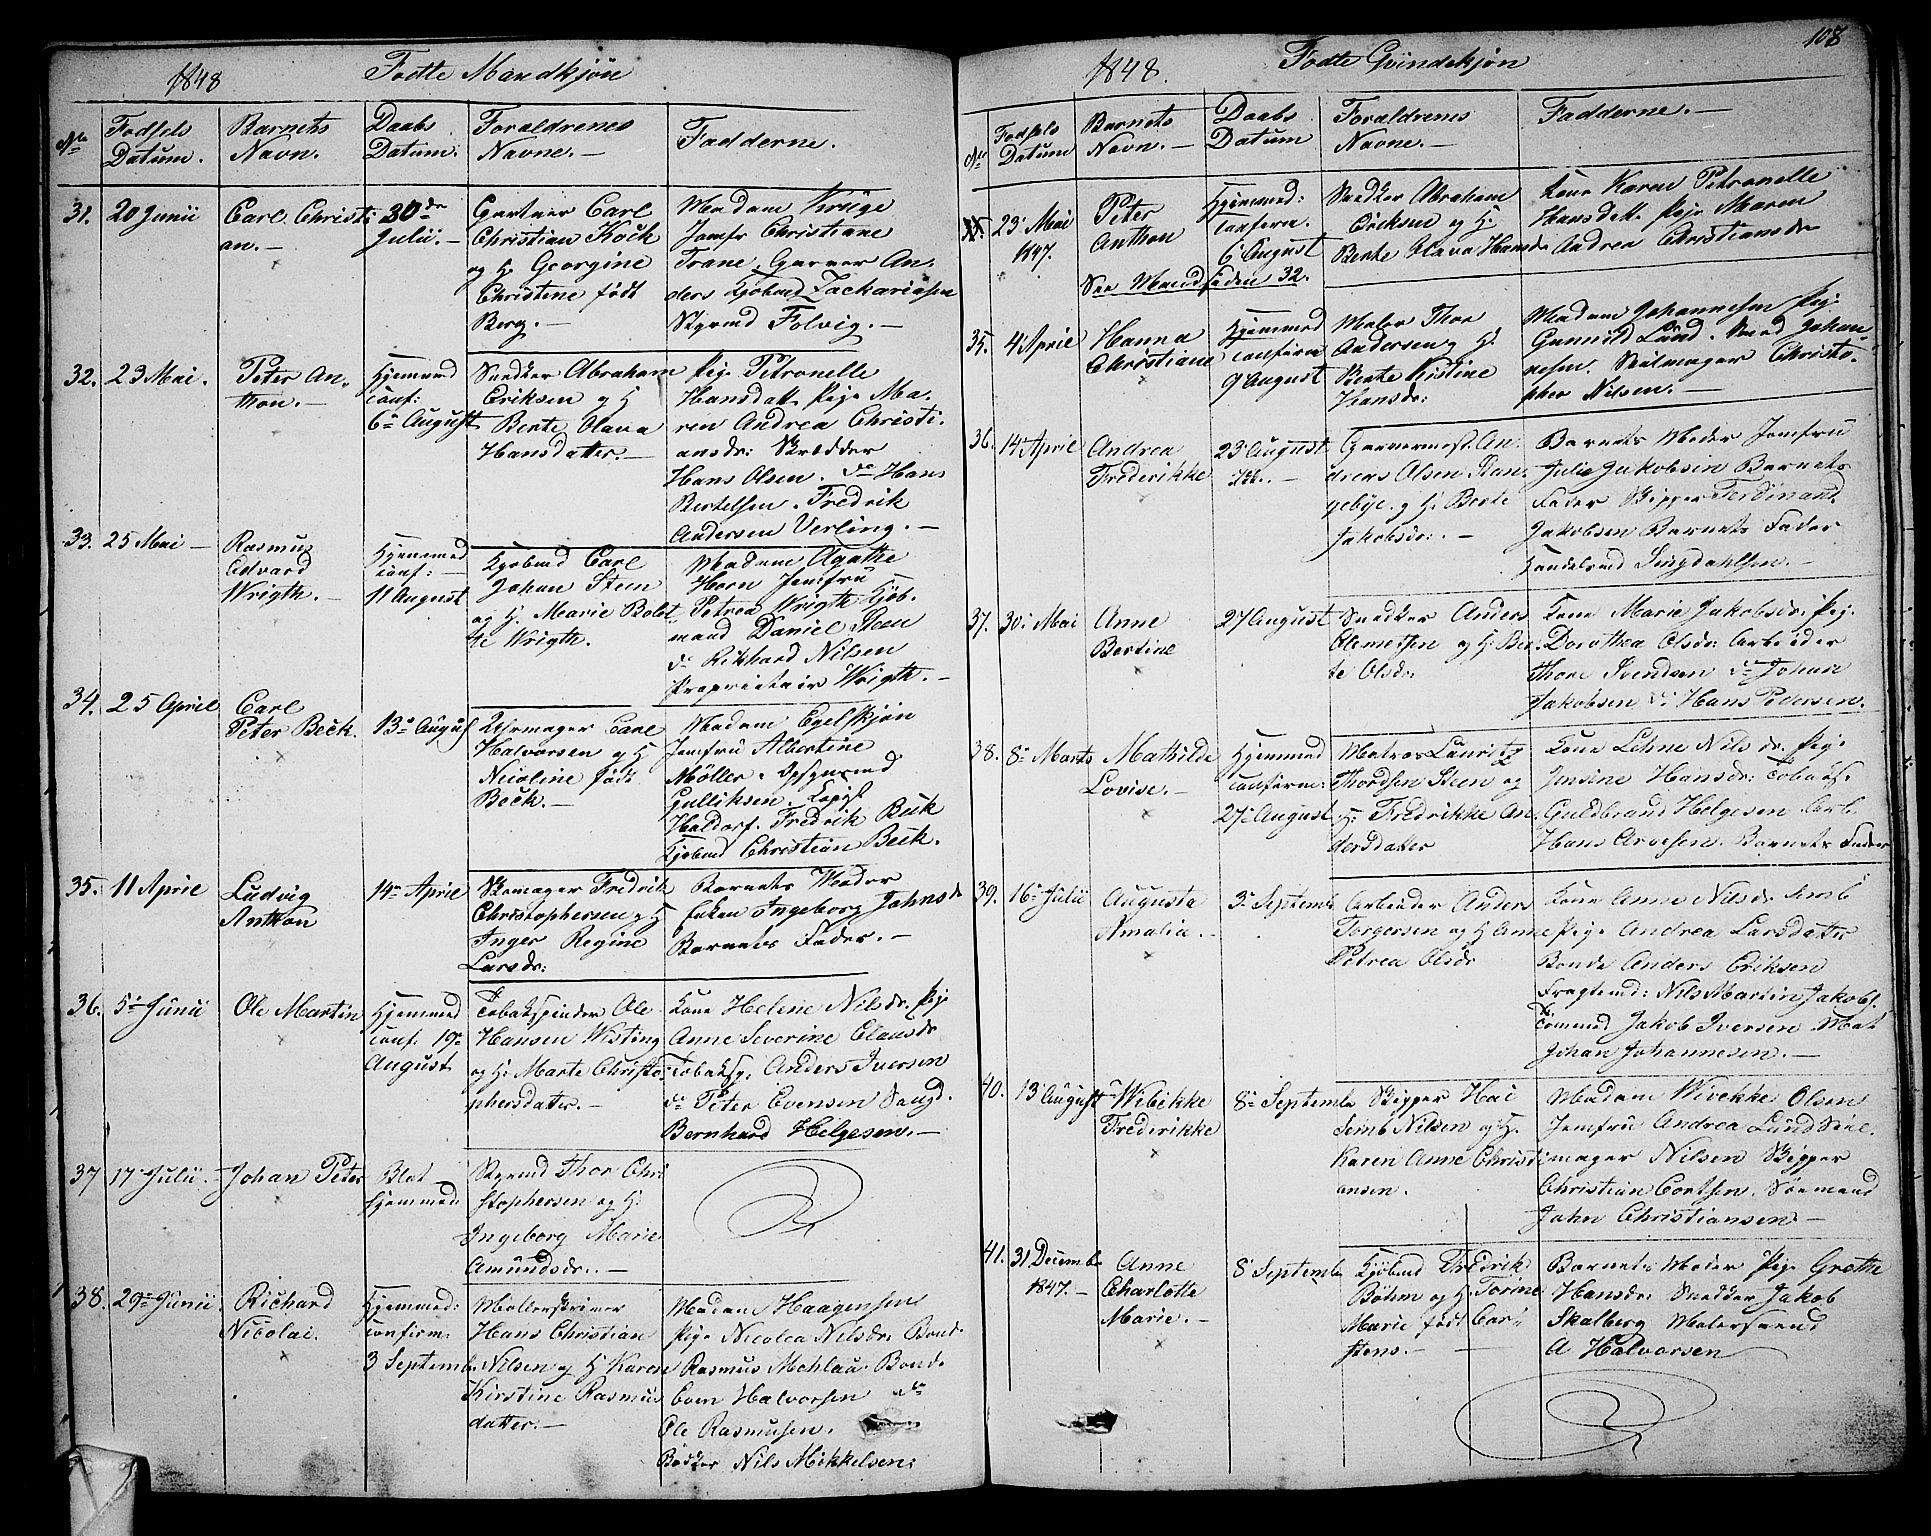 1848 Fødte Mandkjøn
No
Fødsels Datum.
Barnets Navn.
Daabs Datum.
Forældrenes Navne. —
Fadderne. —
31. 20 Junii
Carl Christi
an. —
30de
Julii. —
Gartner Carl
Christian Kock
og H. Georgine
Christine født
Berg. —
Madam Krüge
Jomfr Christiane
Trane. Garver An,
ders Kjøbmd Zachariasen
Styrmd Folvig. —
32. 23 Mai.
Peter An,
thon. —
Hjemmed
conf:
6te August
Snedker Abraham
Eriksen og H
Bente Olava
Hansdatter. —
Pige Petronelle
Hansdatt. Pige Ma,
ren Andrea Christi,
ansdr: Skrædder
Hans Olsen. do Hans
Bertelsen. Fredrik
Andersen Verling. —
33. 25 Mai —
Rasmus
Edvard
Wrigth. —
Hjemmed
conf: —
11 August
Kjøbmd Carl
Johan Steen
og H. Marie Bolet
te Wrigth. —
Madam Agathe
Horn Jomfru
Petrea Wrigth Kjøb,
mand Daniel Steen
do Rikhard Nilsen
Proprietair Wrigth. —
34. 25 April
Carl
Peter Beck.
13de August
Uhrmager Carl
Halvorsen og H
Nicoline født
Beck. —
Madam Egelskjøn
Jomfru Albertine
Möller.
Gulliksen. Kopist
Haldorf. Fredrik Beck
Kjøbmd Christian Beck.
35. 11 April
Ludvig
Anthon
14de April
Skomager Fredrik
Christophersen og H
Inger Regine
Larsdr:
Barnets Moder
Enken Ingeborg Johnsd
Barnets Fader. —
36. 5te Junii
Ole Martin
Hjemmed
conf: 19de
August
Tobakspinder Ole
Hansen Wisting
og H. Marte Christo,
phersdatter. —
Kone Helene Nilsdr. Pige
Anne Severine Clausdr
Tobaksp. Anders Iversen
do Peter Evensen Saugd.
Bernhard Helgesen. —
37 17 Julii. —
Johan Peter
Blot
hjemmed:
Styrmd Thor Chri
stophersen og H.
Ingeborg Marie
Amundsdr. —
38. 29de Junii
Richard
Nicolai.
Hjemmed:
confirm:
3 Septemb
Møllerskriver
Hans Christian
Nilsen og H Karen
Kirstine Rasmus
datter. —
Madam Haagensen
Pige Nicolea Nilsdr. Bond.
Rasmus Mehlaa. Bonde
Even Halvorsen do
Ole Rasmusen.
Bødker Nils Mikkelsen:
1848. Fødte Qvindekjøn
108
No
Fødsels Datum
Barnets Navn. —
Daabs Datum
Forældrenes Navne. —
Fadderne. —
23 Mai
1847.
Peter
Anthon
Hjemmed:
confirm.
6 August
Snedker Abraham
Eriksen og H:
Bente Olava Hansdr
Kone Karen Petronelle
Hansdatt. Pige Maren
Andrea Christiansdr
See Mandsiden 32.
35. 4 April
Hanna
Christiane
Hjemmed
confirm
9 August
Maler Thor
Andersen og H.
Bente Kistine
Hansdr:
Madam Johannesen Pige
Gunnild Lund. Smed Johan,
nesen. Seilmager Christo,
pher Nilsen. —
36. 14 April
Andrea
Frederikke
23 August
Garvermest. An,
dreas Olsen Ran,
gebye. og H: Berte
Jakobsdr. —
Barnets Moder Jomfru
Julie Jakobsen Barnets
Fader Skipper Ferdinand
Jakobsen Barnets Fader
Handelsmd Lingdahlsen. —
37. 30 Mai
Anne
Bertine
27 August
Snedker Anders
Clemetsen og H: Ber,
te Olsdr
Kone Marie Jakobsdr. Pige
Dorothea Olsdr. Arbeider
Thore Svendsen do Johan
Jakobsen do Hans Pedersen.
38. 8de Marts
Mathilde
Lovise. —
Hjemmed
confirm:
27de August
Matros Lauritz
Thordsen Steen og
H: Fredrikke An,
dersdatter
Kone Lehne Nilsdr. Pige
Jensine Hansdr: Tobaksp.
Guldbrand Helgesen Arb.
Hans Arvesen. Barnets Fader
39. 16de Julii
Augusta
Amalia. —
3de Septemb
Arbeider Anders
Torgersen og H Anne
Petrea Olsdr
Kone Anne Nilsdr Semb
Pige Andrea Larsdatter
Bonde Anders Eriksen
Fragtemd: Nils Martin Jakobs.
Tømmd Jakob Iversen Mat
Johan Johannesen. —
40. 13 August
Wibekke
Frederikke
8de Septemb
Skipper Hai
Semb Nilsen og H.
Karen Anne Christi
ansen.
Madam Wivekke Olsen
Jomfru Andrea Lund Seil,
mager Nilsen Skipper
Christian Cortsen. Sømand
John Christiansen —
41. 31 Decemb
1847. —
Anne
Charlotte
Marie. —
8 Septemb
Kjøbmd Fredrik
Bøhm og H. Torine
Marie født Car,
stens. —
Barnets Moder Pige Grethe
Hansdr. Snedker Jakob
Skalberg Malersvend
A Halvorsen